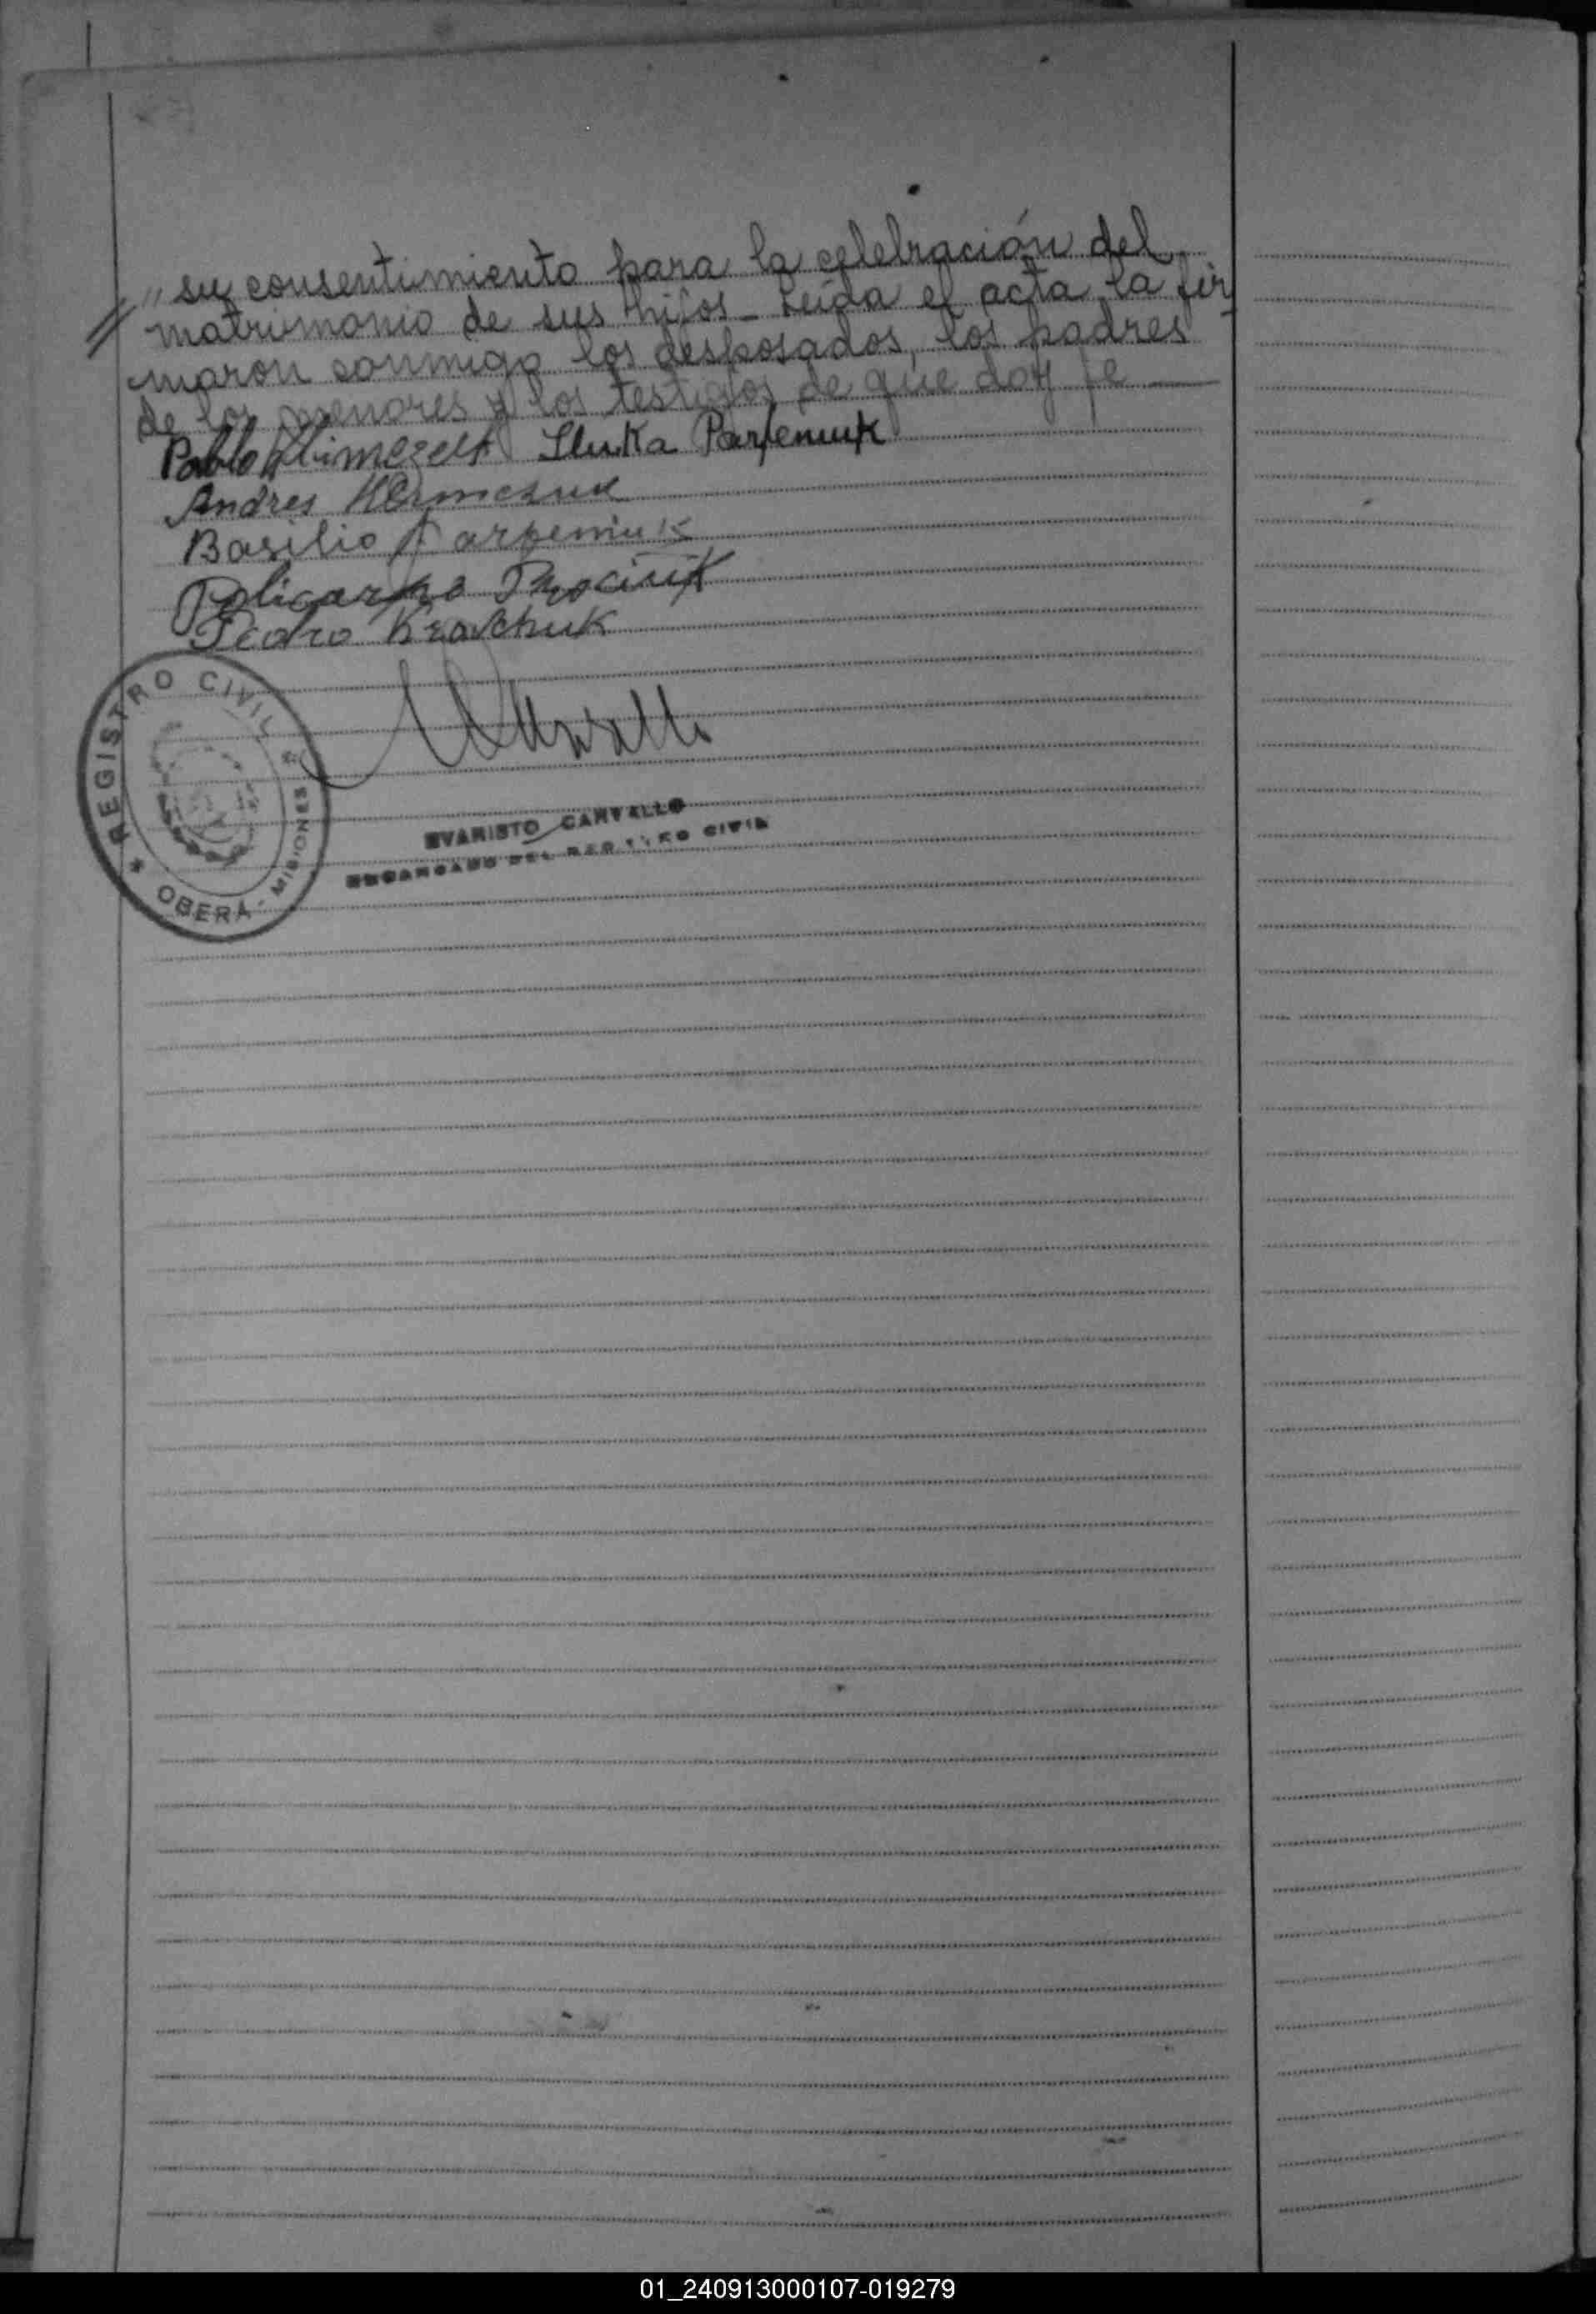 // " su consentimiento para la celebración del
matrimonio de sus hijos_ Leída el acta la fir
maron conmigo los desposados, los padres
de los menores y los testigos de que doy fe —
Pablo Iluka Parfeniuk
Andres
Basilio Parfeniuk
Policarpo Prociuk
Pedro Kravchuk
REGISTRO CIVIL
OBERA - MISIONES
EVARISTO CARVALLO
ENCARGADO DEL REGISTRO CIVIL
01_240913000107-019279